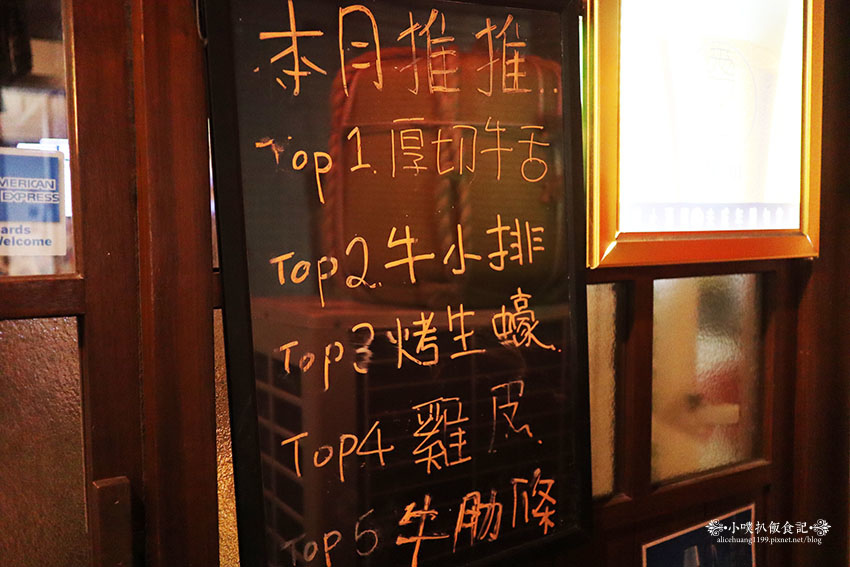 本月推推..
Top 1.厚切牛舌
Top 2.牛小排
Top 3 烤生蠔.
Top 4 雞皮.
Top 5 牛肋條
MERICAN
EXPRESS
ards
elcome
小噗扒飯食記
alicehuang1199.pixnet.net/blog